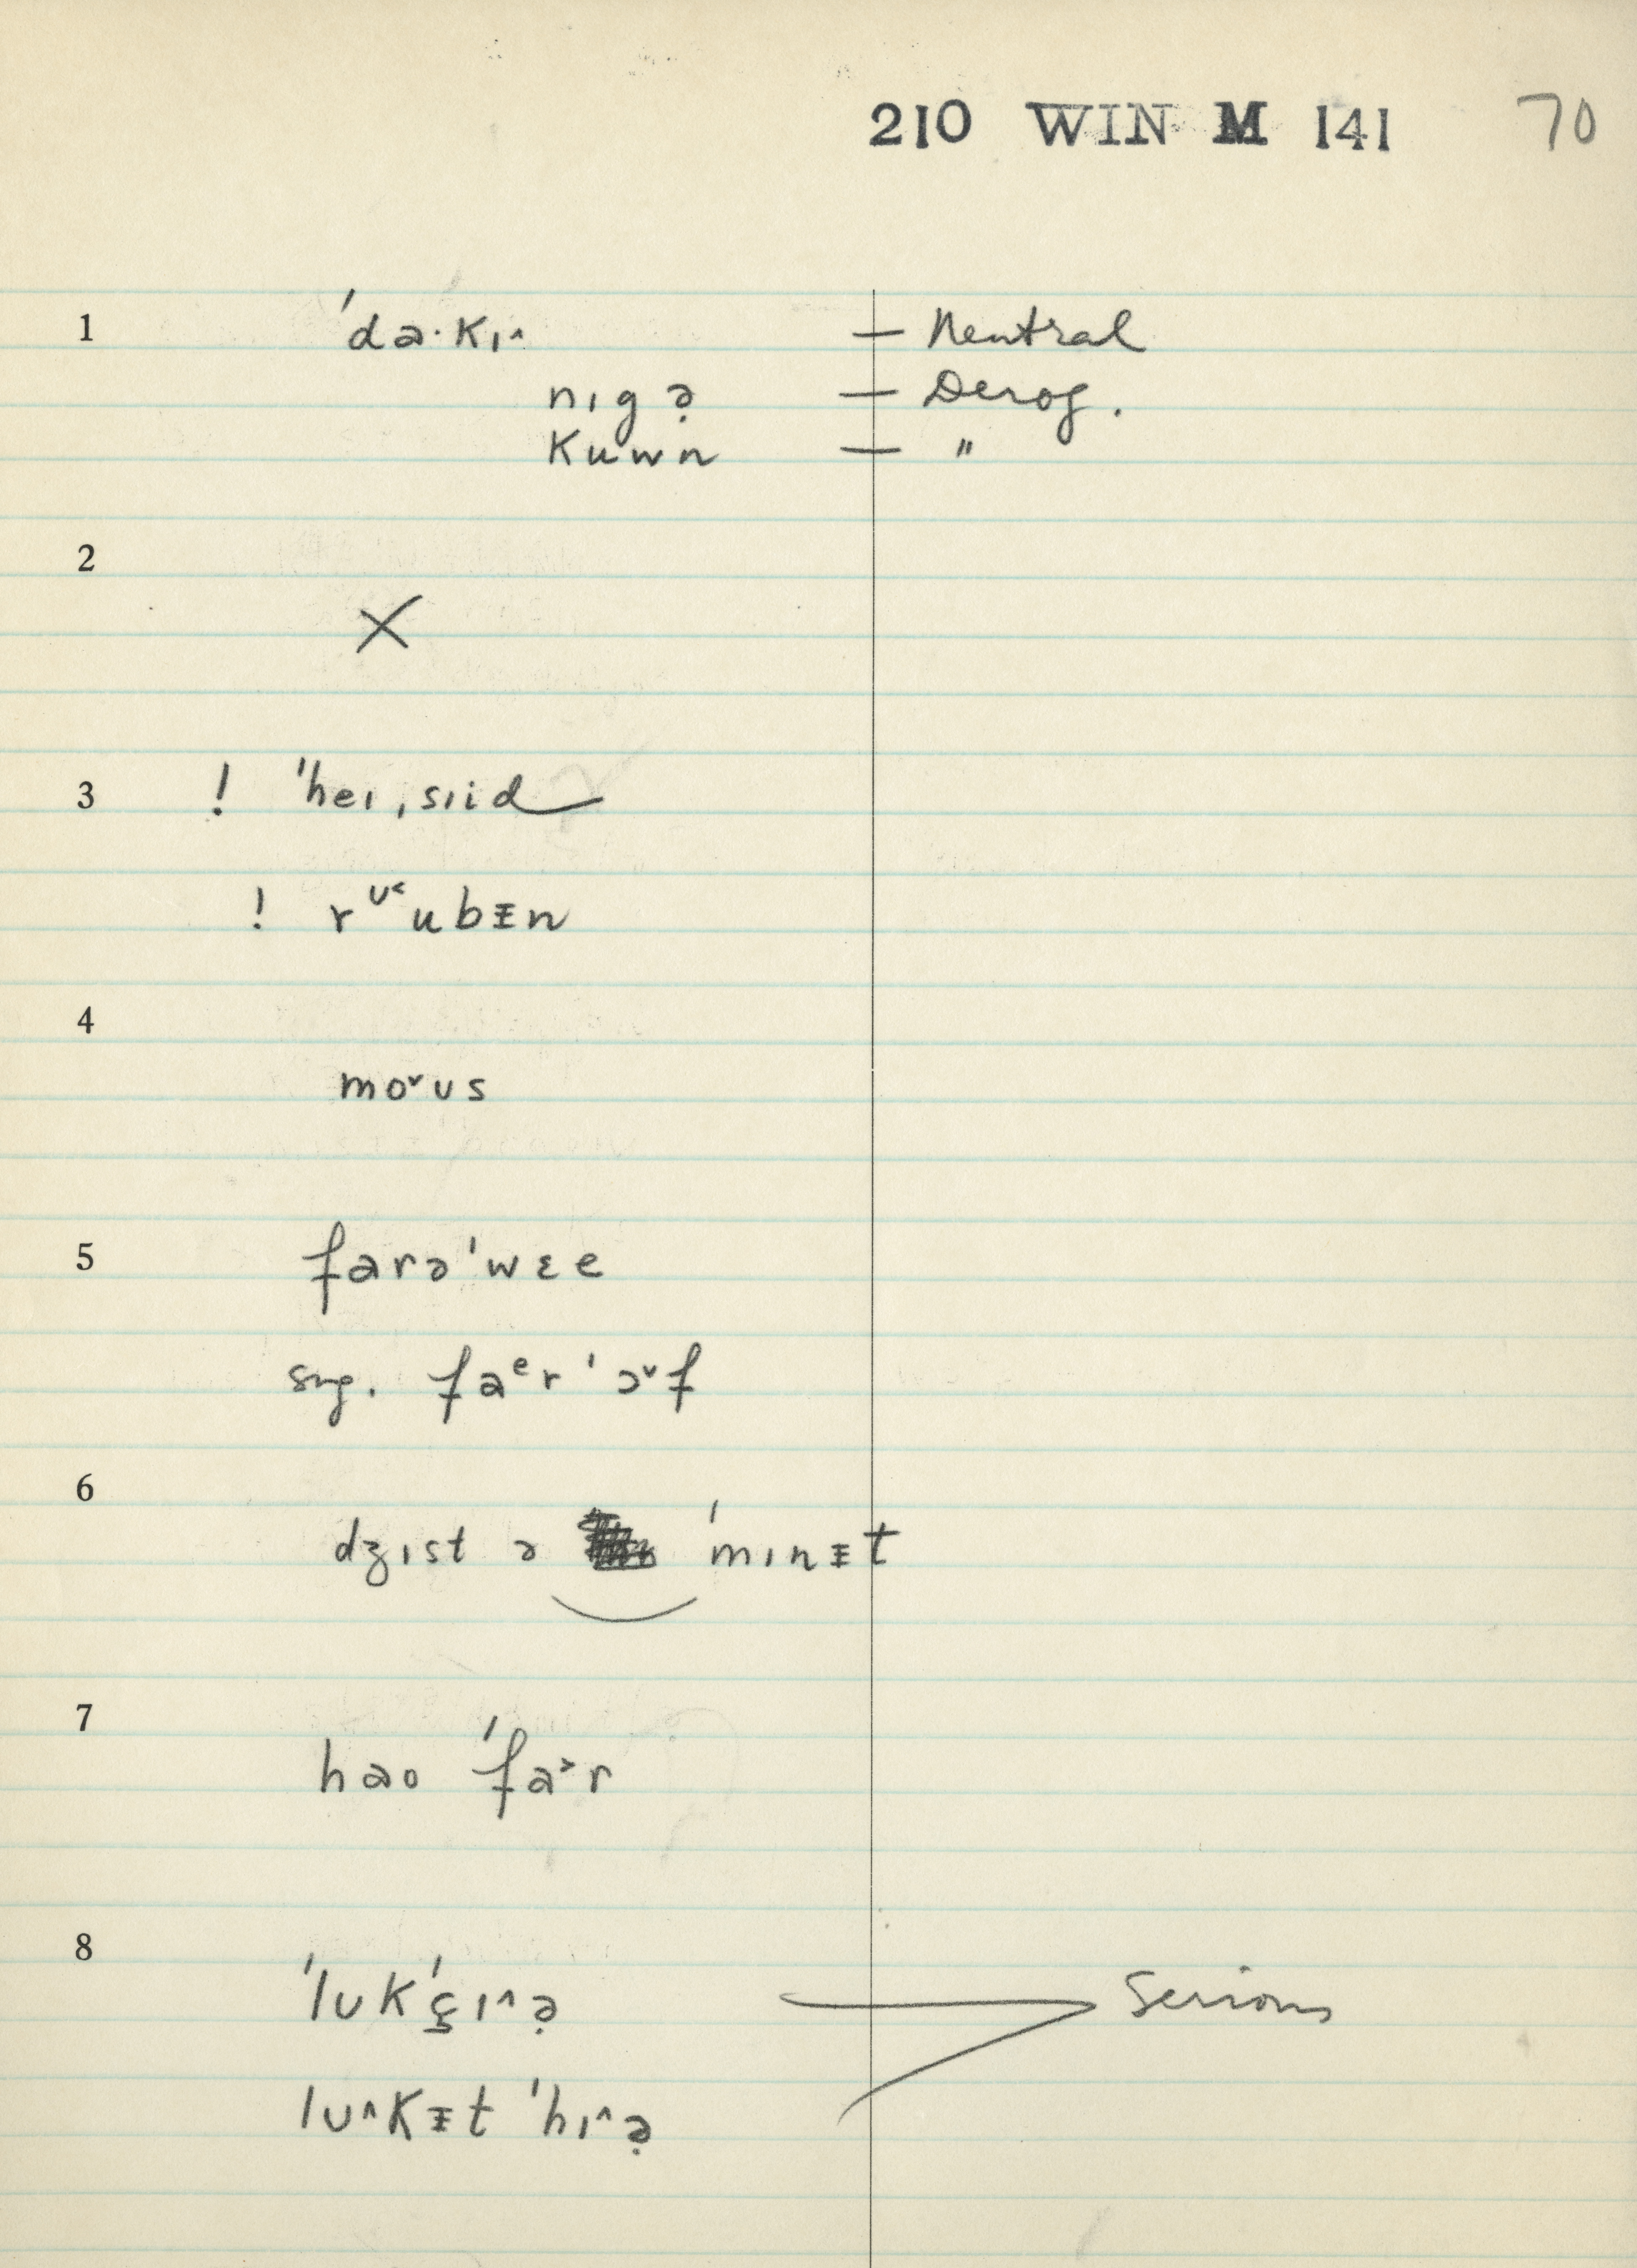 210 WIN M 141 70
1 ˈda·kɪ^ — Neutral
nɪgə̣ — Derog.
kuwn — "
2
X
3 ! ˈheɪ ˌsɪid
! rᶷ˂ubɪ̵n
4
mo˅ʊs
5 farəˈwɛe
sng. faᵉrˈɔ˅f
6
dʒɪst ə ˈmɪnɪ̵t
7
hao ˈfa˃r
8
ˈlʊkˈç̱ɪ^ə̣ Serious
lʊ^kɪ̵t ˈhɪ^ə̣